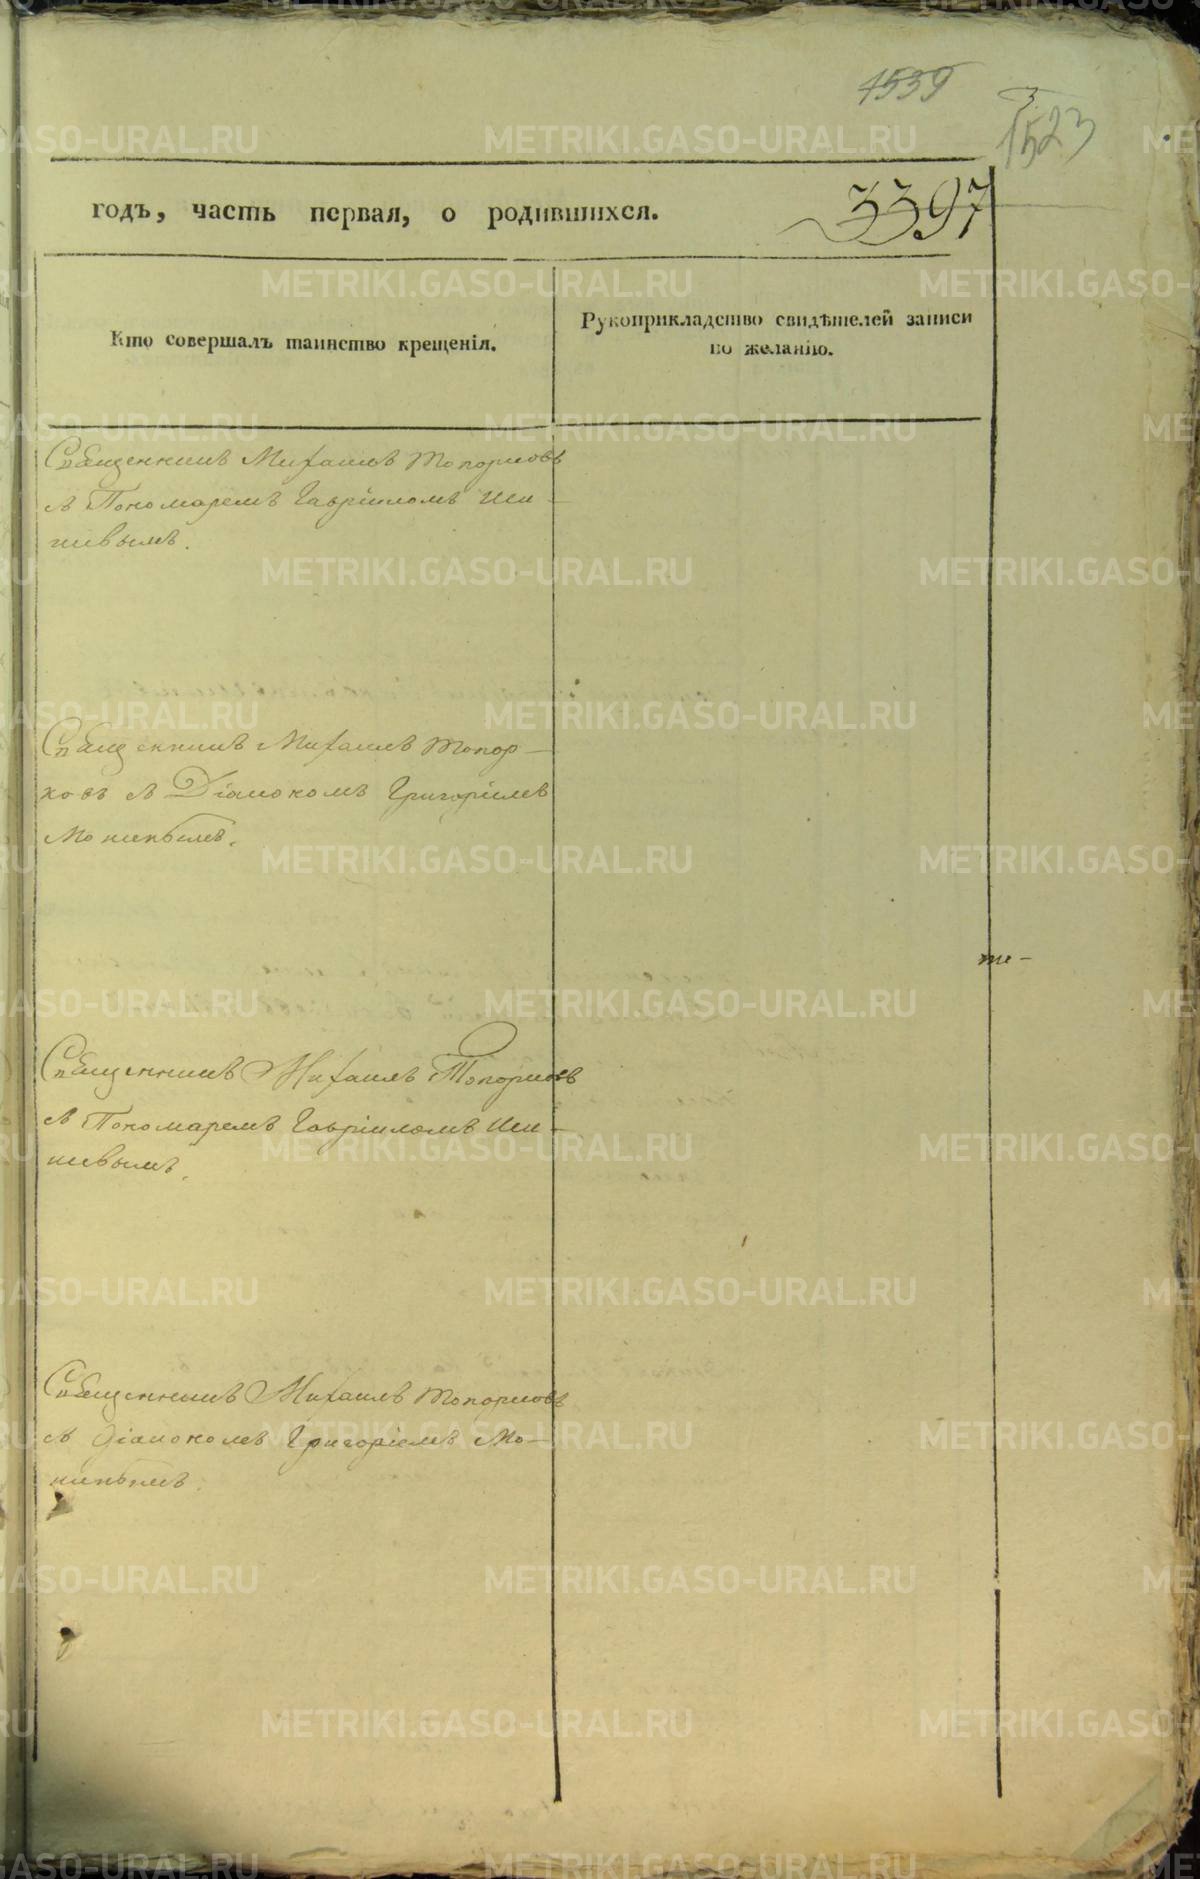 1539
1523
годъ, часть первая, о родившихся.
3397
Кто совершалъ таинство крещенія.
Рукоприкладство свидѣтелей записи
по желанію.
Священникъ Михаилъ Топорковъ
съ Пономаремъ Гавріиломъ Ши-
шевымъ.
Священникъ Михаилъ Топор-
ковъ съ Діакономъ Григоріемъ
те-
Священникъ Михаилъ Топорковъ
съ Пономаремъ Гавріиломъ Ши-
шевымъ.
Священникъ Михаилъ Топорковъ
съ Діакономъ Григоріемъ Мо-
METRIKI.GASO-URAL.RU